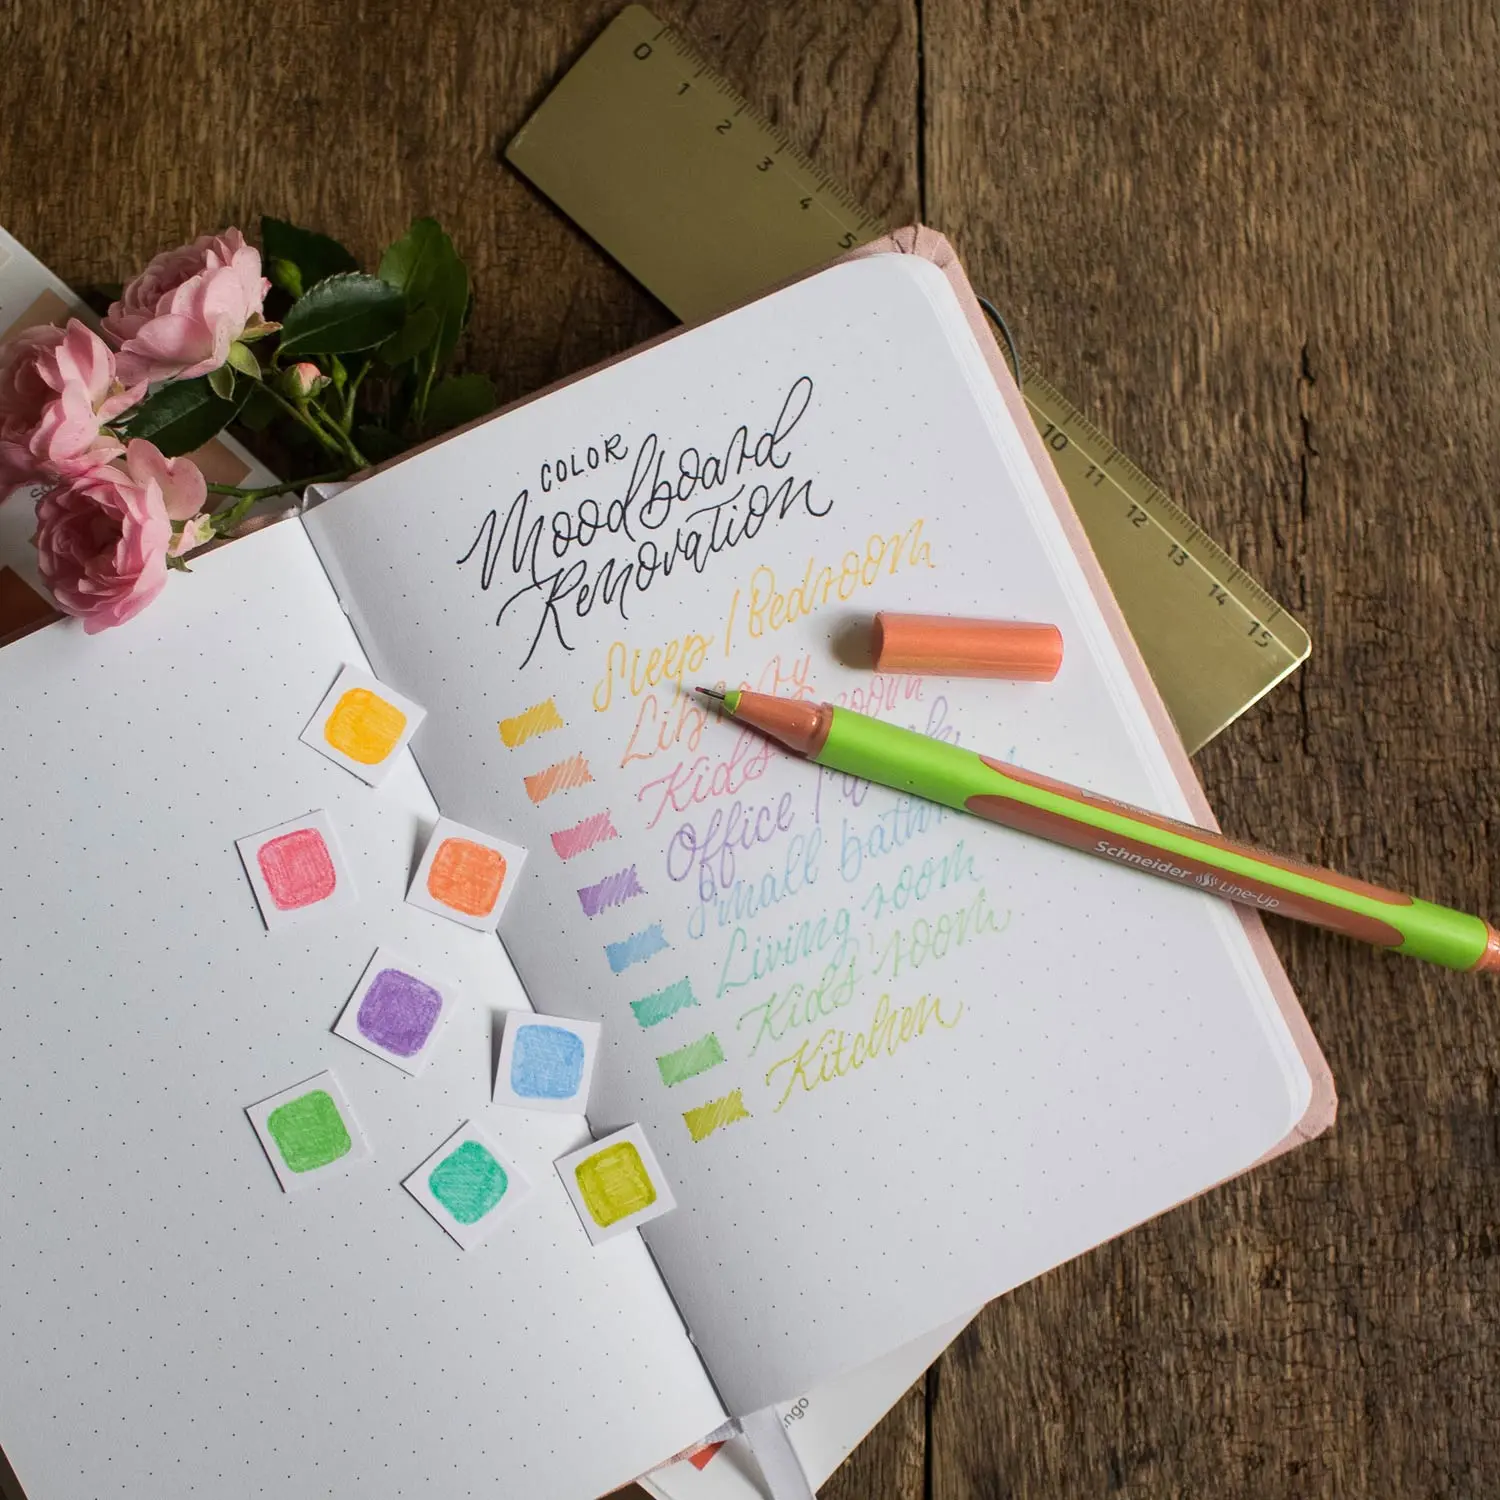 0 1 2 3 4 5
10 11 12 13 14 15
COLOR
Moodboard
Renovation
Sleep / Bedroom
Library
Kids' room
Office /
Small bathr
Living room
Kids' room
Kitchen
Schneider Line-Up
ngo